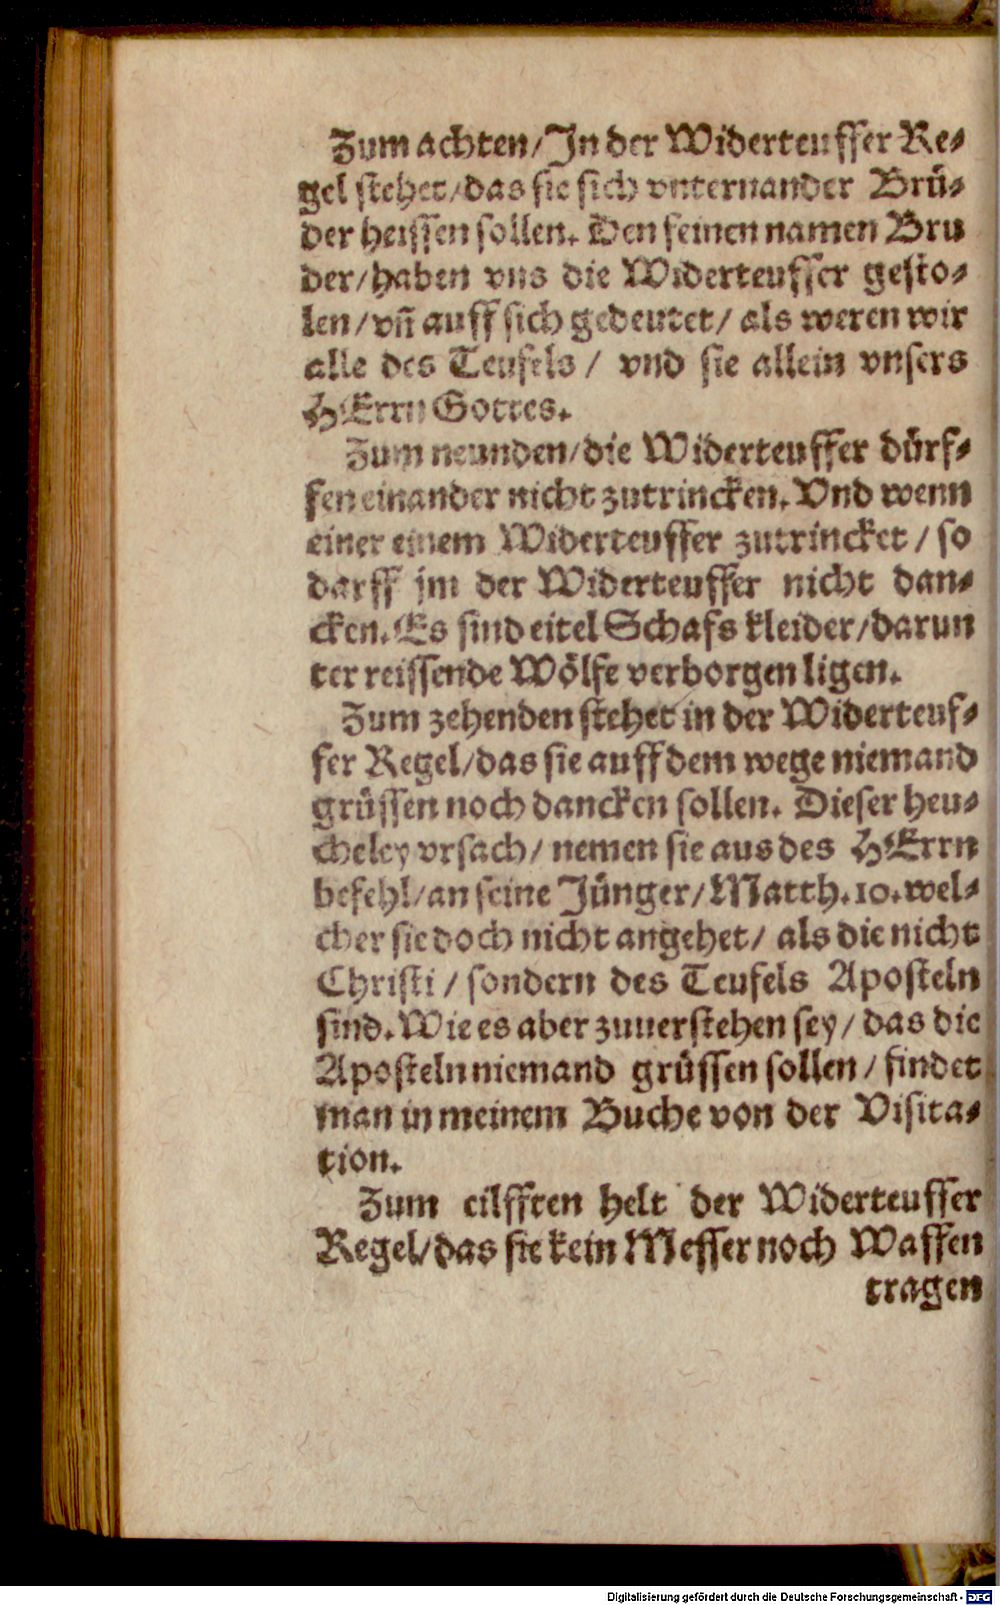 Zum achten/ In der Widerteuffer Re-
gel stehet/ das sie sich vnternander Brü-
der heissen sollen. Den feinen namen Bru
der/ haben vns die Widerteuffer gesto-
len/ vñ auff sich gedeutet/ als weren wir
alle des Teufels/ vnd sie allein vnsers
HErrn Gottes.
Zum neunden/ die Widerteuffer dürf-
fen einander nicht zutrincken. Vnd wenn
einer einem Widerteuffer zutrincket/ so
darff jm der Widerteuffer nicht dan-
cken. Es sind eitel Schafs kleider/ darun
ter reissende Wölfe verborgen ligen.
Zum zehenden stehet in der Widerteuf-
fer Regel/ das sie auff dem wege niemand
grüssen noch dancken sollen. Dieser heu-
cheley vrsach/ nemen sie aus des HErrn
befehl/ an seine Jünger/ Matth. 10. wel-
cher sie doch nicht angehet/ als die nicht
Christi/ sondern des Teufels Aposteln
sind. Wie es aber zuuerstehen sey/ das die
Aposteln niemand grüssen sollen/ findet
man in meinem Buche von der Visita-
tion.
Zum eilfften helt der Widerteuffer
Regel/ das sie kein Messer noch Waffen
tragen
Digitalisierung gefördert durch die Deutsche Forschungsgemeinschaft - DFG